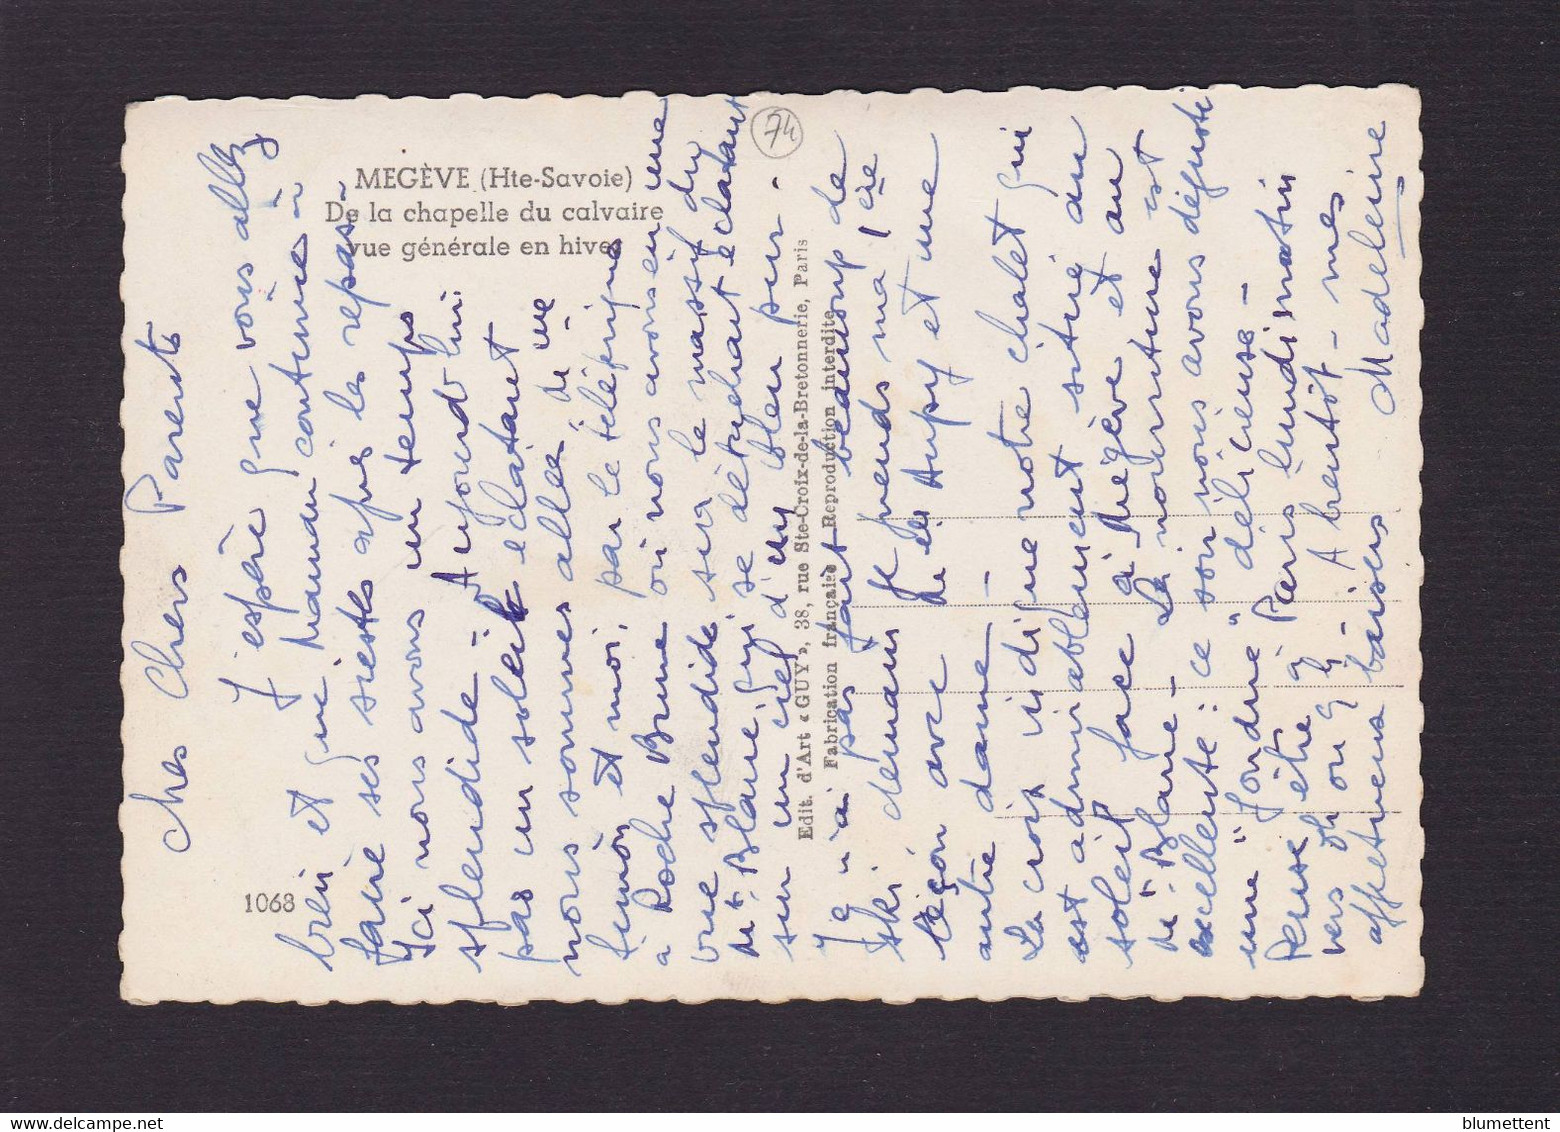 MEGÈVE (Hte-Savoie)
De la chapelle du calvaire
vue générale en hiver
1068
74
Edit. d'Art « GUY », 38, rue Ste-Croix-de-la-Bretonnerie, Paris
Fabrication française Reproduction interdite
Mes Chers Parents
J'espère que vous allez
bien et que Maman continue à
faire ses siestes après les repas -
Ici nous avons un temps
splendide - Aujourd'hui
pas un soleil éclatant
nous sommes allés,
Simon et moi, par le téléférique
à Roche Brune où nous avons eu une
vue splendide sur le massif du
Mt Blanc qui se détachait éclatant
sur un ciel d'un bleu pur -
Je n'ai pas fait beaucoup de
ski demain je prends ma 1ère
leçon avec
autre dame -
La croix indique notre chalet qui
est admirablement situé au
soleil face à Mégève et au
Mt Blanc - La nourriture est
excellente : ce soir nous avons dégusté
une "fondue" délicieuse -
Pense être à Paris lundi matin
vers 8h ou 9h - A bientôt - mes
affectueux baisers Madeleine
blumettent